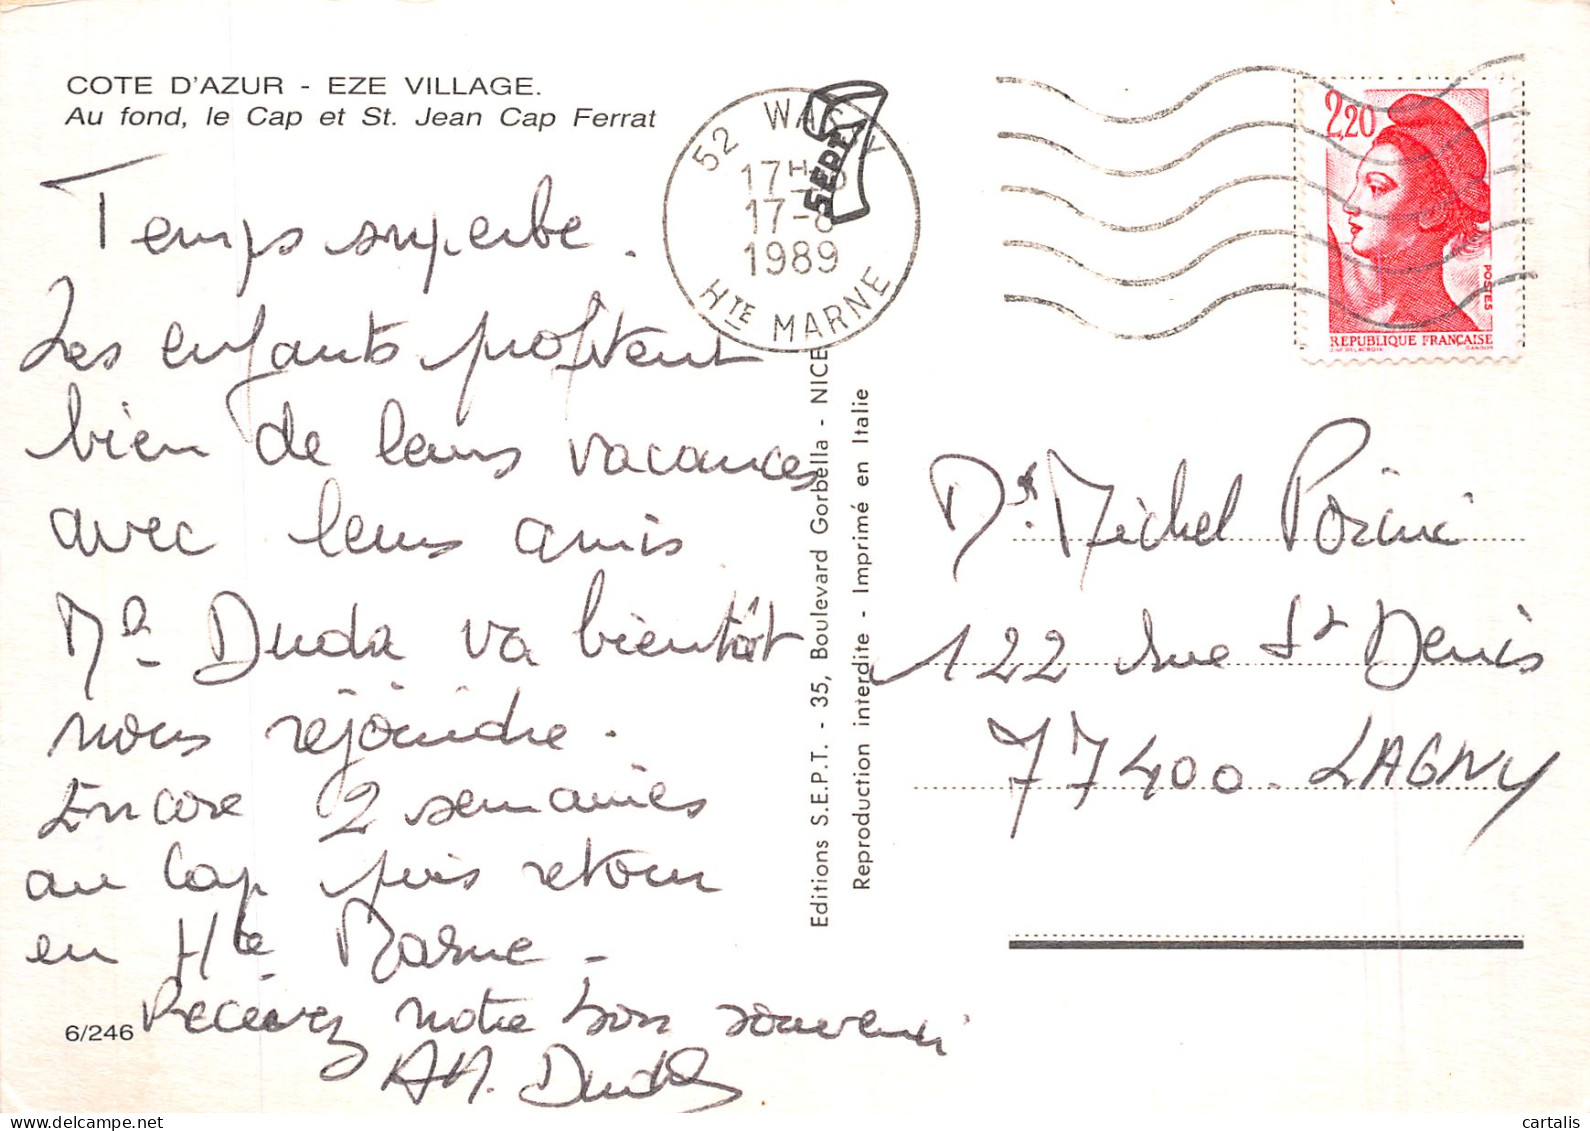 COTE D'AZUR - EZE VILLAGE.
Au fond, le Cap et St. Jean Cap Ferrat
Temps superbe.
Les enfants profitent
bien de leurs vacances
avec leurs amis
Mr Duda va bientôt
nous rejoindre.
Encore 2 semaines
au Cap puis retour
en Hte Marne -
Recevez notre bon souvenir
6/246
52 WASSY
17H
17-8
1989
HTE MARNE
SEPT
Editions S.E.P.T. - 35, Boulevard Gorbella - NICE
Reproduction interdite - Imprimé en Italie
2,20
POSTES
REPUBLIQUE FRANÇAISE
Dr. Michel
122 rue St Denis
77400. LAGNY
cartalis
delcampe.net